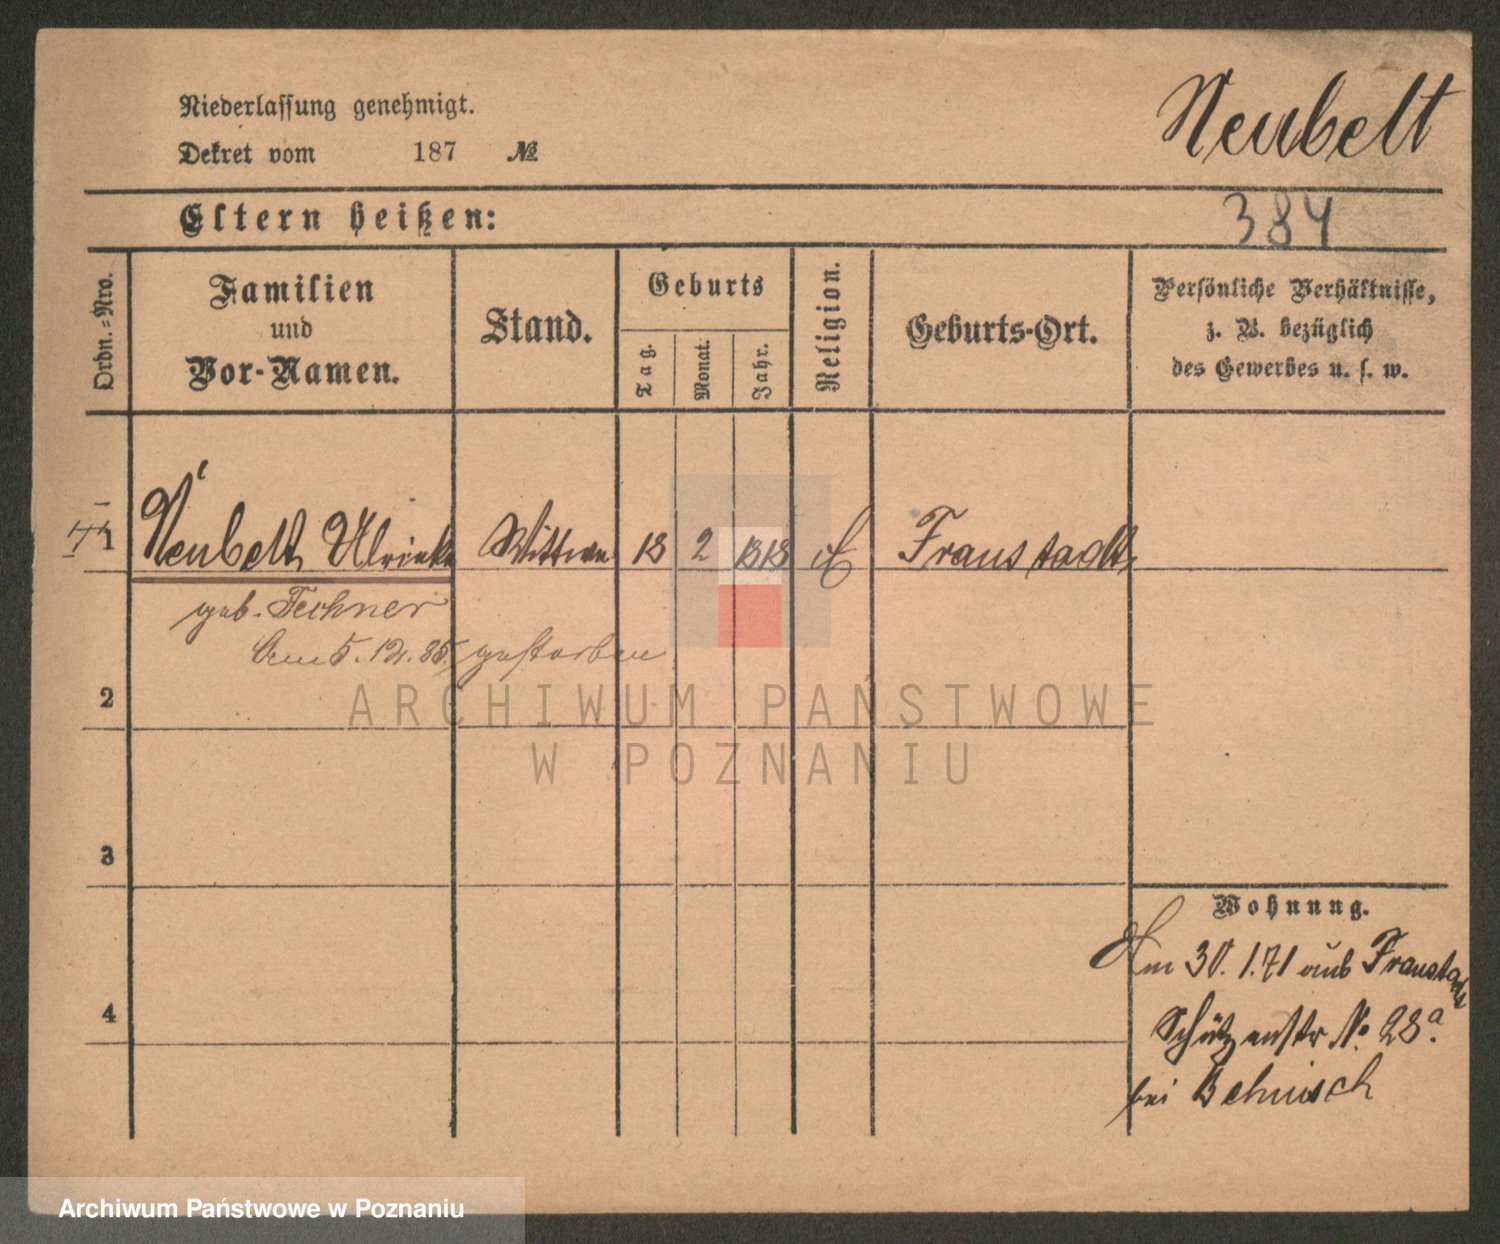 Niederlassung genehmigt.
Dekret vom 187 №
Neubelt
Eltern heißen:
384
Ordn.=Nro.
Familien
und
Vor-Namen.
Stand.
Geburts
Tag.
Monat.
Jahr.
Religion.
Geburts-Ort.
Persönliche Verhältnisse,
z. B. bezüglich
des Gewerbes u. s. w.
1 Neubelt, Ulrieke Wittwe 18 2 1818 Fraustadt,
geb. Fechner
Am 5.12.85 gestorben.
2
ARCHIWUM PAŃSTWOWE
W POZNANIU
3
Wohnung.
Am 30.1.71 aus Fraustadt
4
Schützenstr № 28a.
bei Behnisch
Archiwum Państwowe w Poznaniu